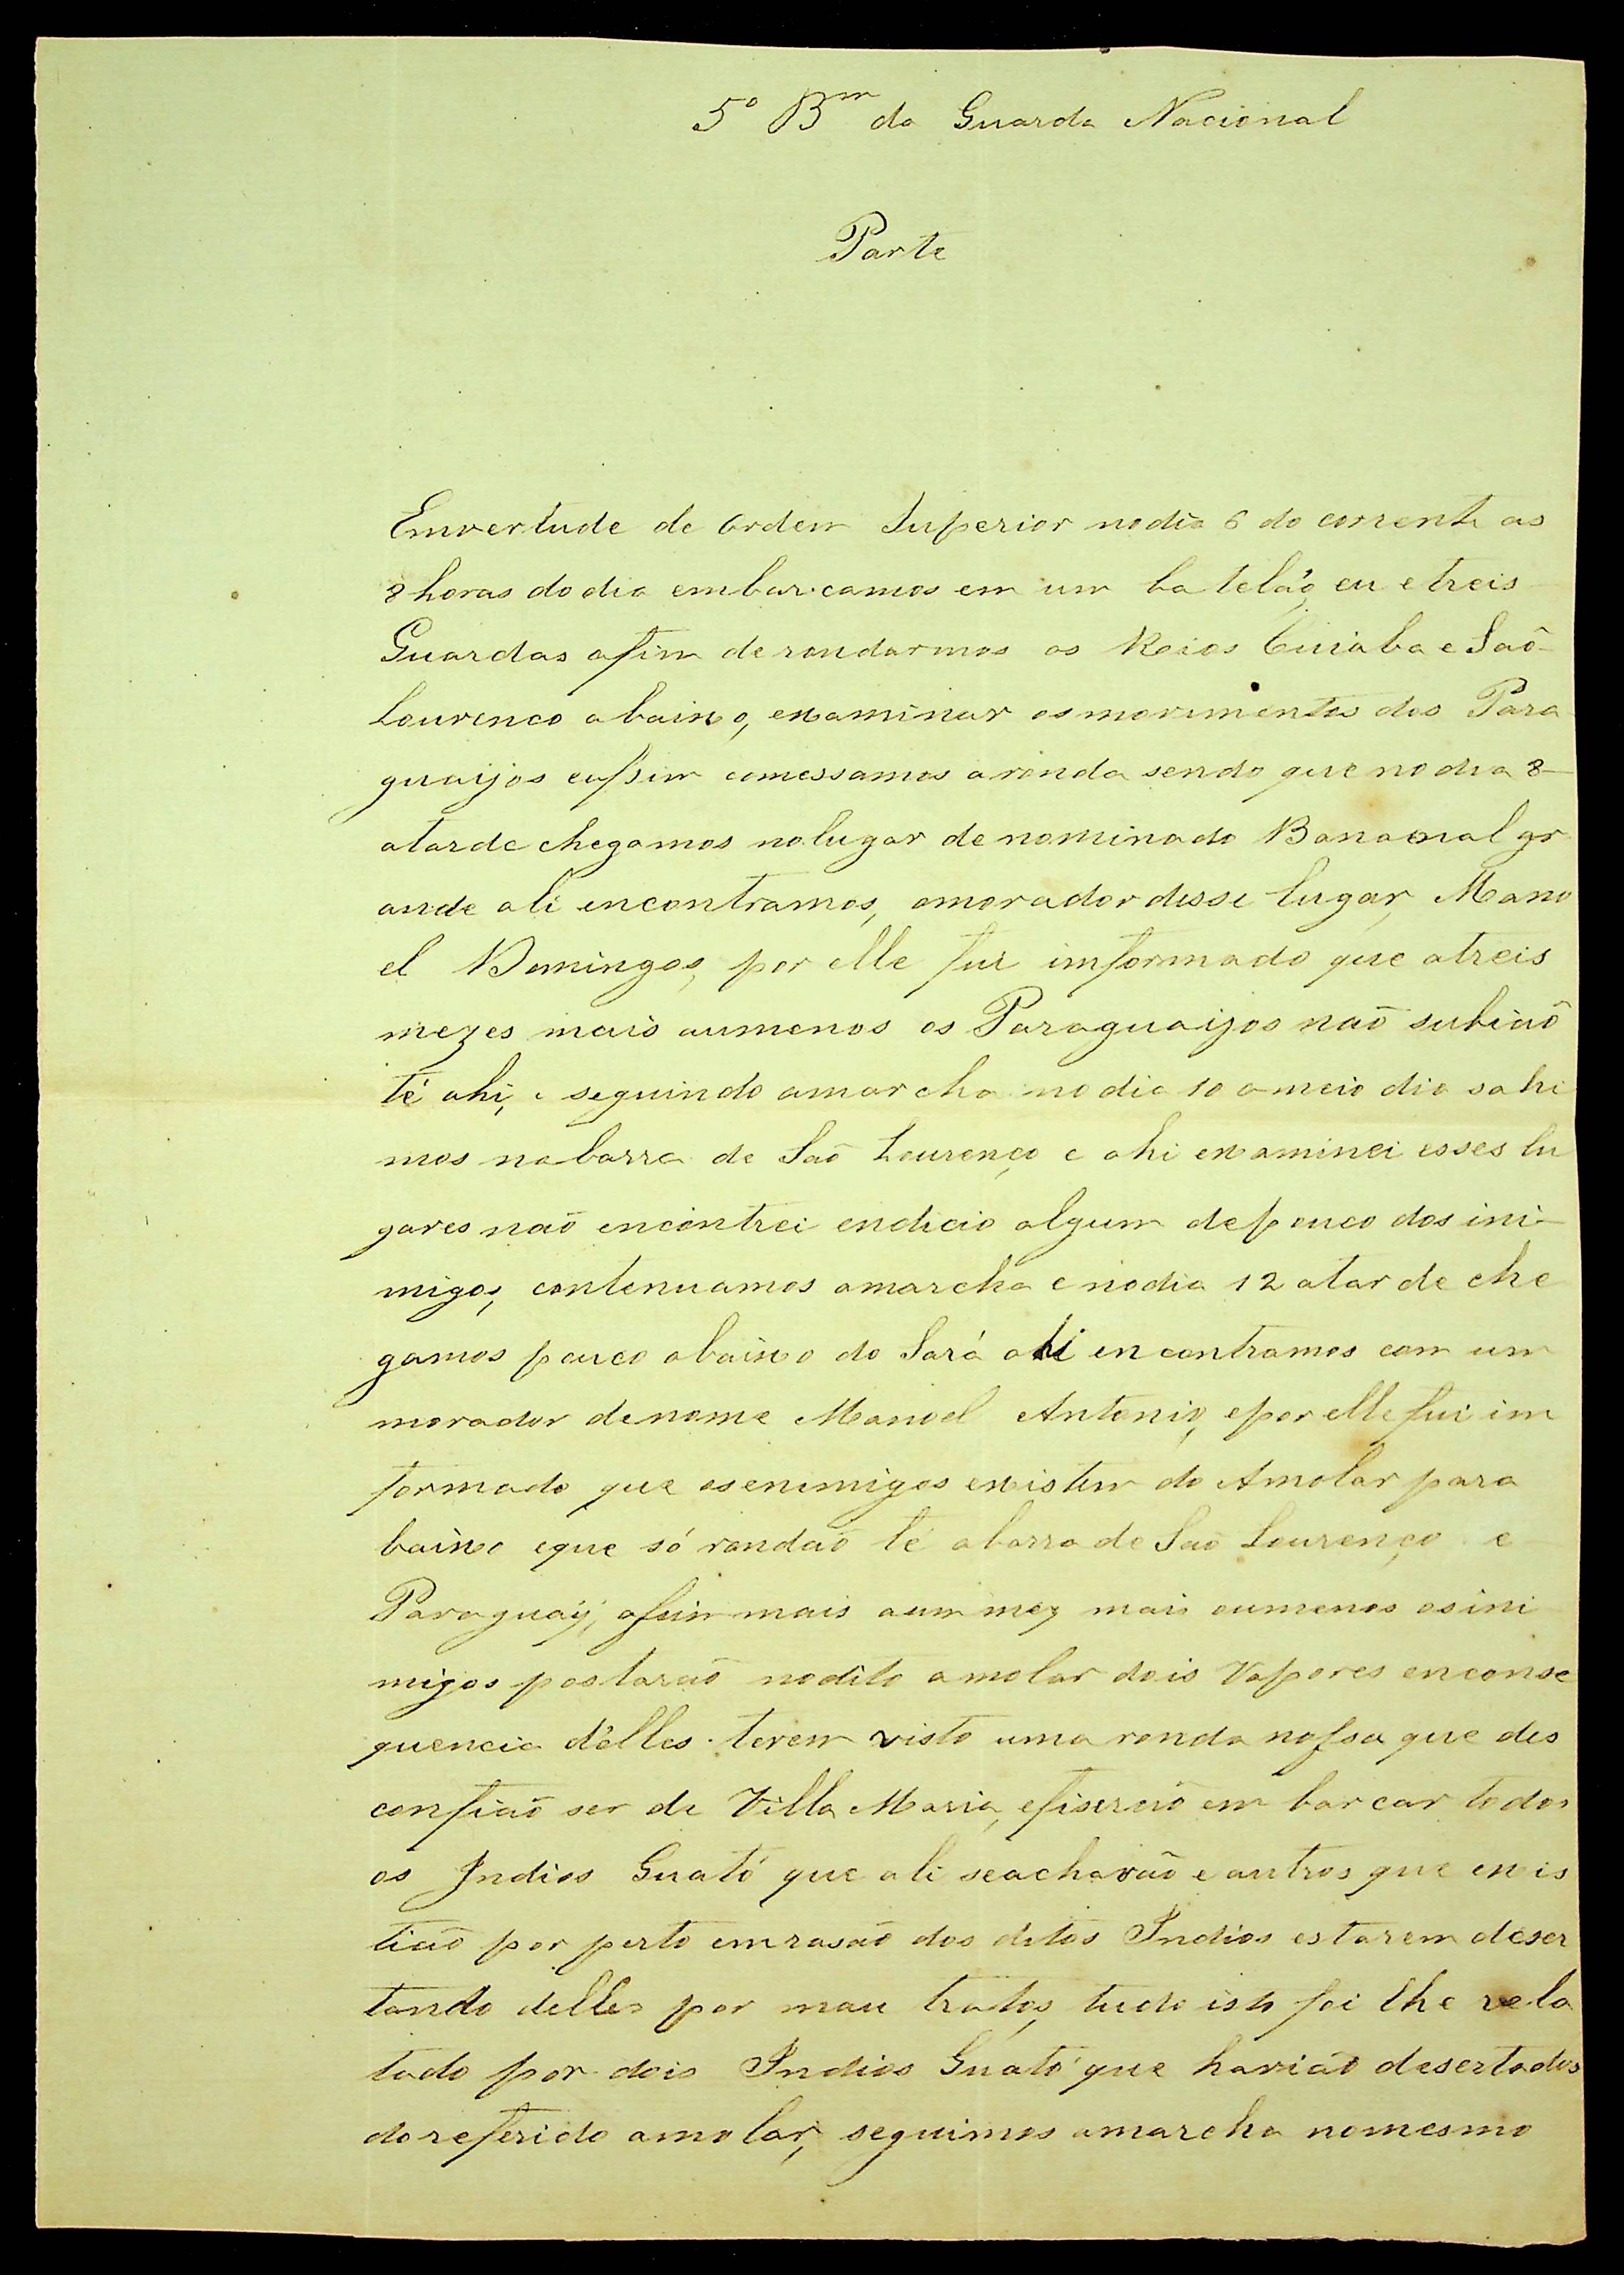 5º B.m da Guarda Nacional
Parte
Emvertude de Ordem Superior nodia 6 do corrente as
8 horas dodia embarcamos em um batelaõ, eu e treis
Guardas afim de rondarmos os Reios Cuiaba e Saõ
Lourenco abaixo, examinar osmovimentos dos Para
guaijos eassim comessamos aronda sendo que nodia 8
atarde chegamos nolugar denominado Bananal gr
ande ali encontramos, omorador desse lugar, Mano
el Domingos, por elle fui imformado que atreis
mezes mais aumenos os Paraguaijos naõ subiaõ
té ahi, e seguindo amarcha nodia 10 omeio dia sahi
mos nabarra de Saõ Lourenço e ahi examinei esses lu
gares naõ encontrei endicio algum depouco dos ini
migos, contenuamos amarcha enodia 12 atarde che
gamos pouco abaixo do Sará ahi encontramos com um
morador denome Manoel Antonio, epor elle fui im
formado que osenimigos existem do Amolar para
baixo eque só rondaõ té abarra de Saõ Lourenço e
Paraguaÿ, assim mais aum mez mais oumenos osini
migos postaraõ nodito amolar dois Vapores enconse
quencia d'elles terem visto uma ronda nossa que des
confiaõ ser de Villa Maria, efiseraõ embarcar todos
os Indios Guató que ali seachavaõ e autros que exis
tiaõ por perto emrasaõ dos ditos Indios estarem deser
tando delles por mau tratos, tudo isto foi lhe rela
tado por dois Indios Guató que haviaõ desertados
do referido amolar, seguimos amarcha nomesmo